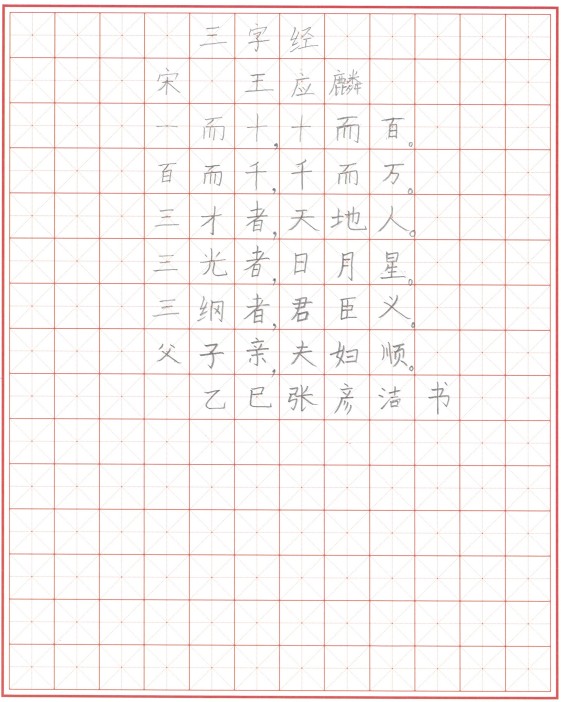 三字经
宋 王应麟
一而十,十而百。
百而千,千而万。
三才者,天地人。
三光者,日月星。
三纲者,君臣义。
父子亲,夫妇顺。
乙巳张彦洁书